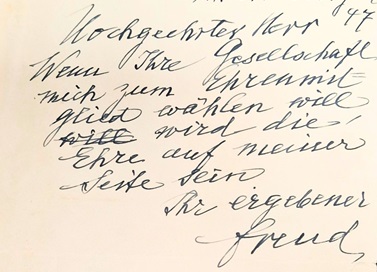 Hochgeehrter Herr 47
Wenn Ihre Gesellschaft
mich zum Ehrenmit=
glied wählen will
will wird die
Ehre auf meiner
Seite sein
Ihr ergebener
Freud